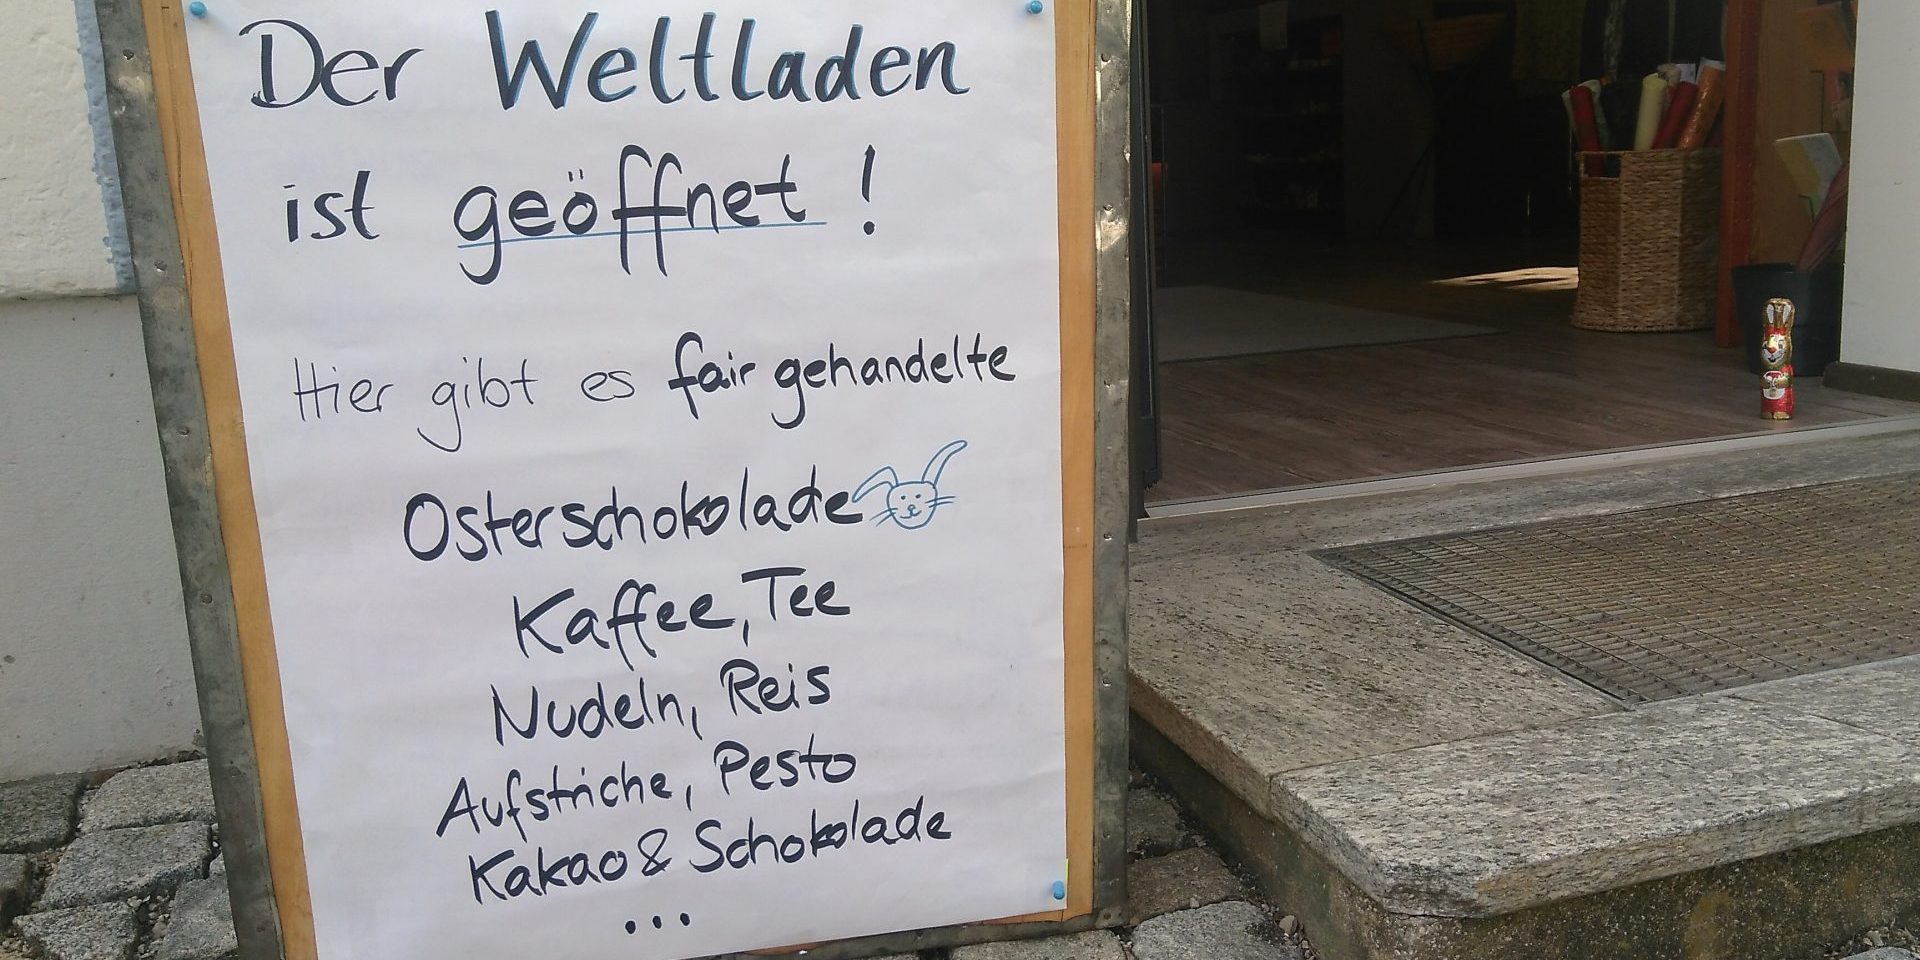 Der Weltladen
ist geöffnet!
Hier gibt es fair gehandelte
Osterschokolade
Kaffee, Tee
Nudeln, Reis
Aufstriche, Pesto
Kakao & Schokolade
...